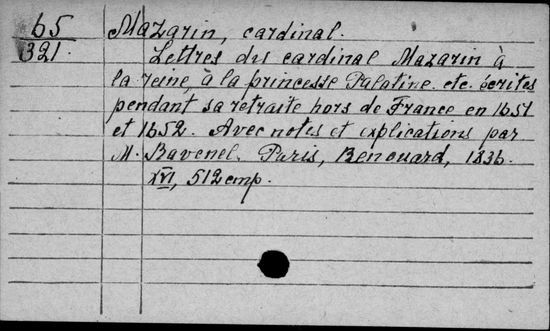 65 Mazarin, cardinal.
321. Lettres du cardinal Mazarin à
la reine, à la princesse Palatine. etc. écrites
pendant sa retraite hors de France en 1651
et 1652. Avec notes et explications par
M. Ravenel. Paris, Renouard, 1836.
XVI, 512 стр.